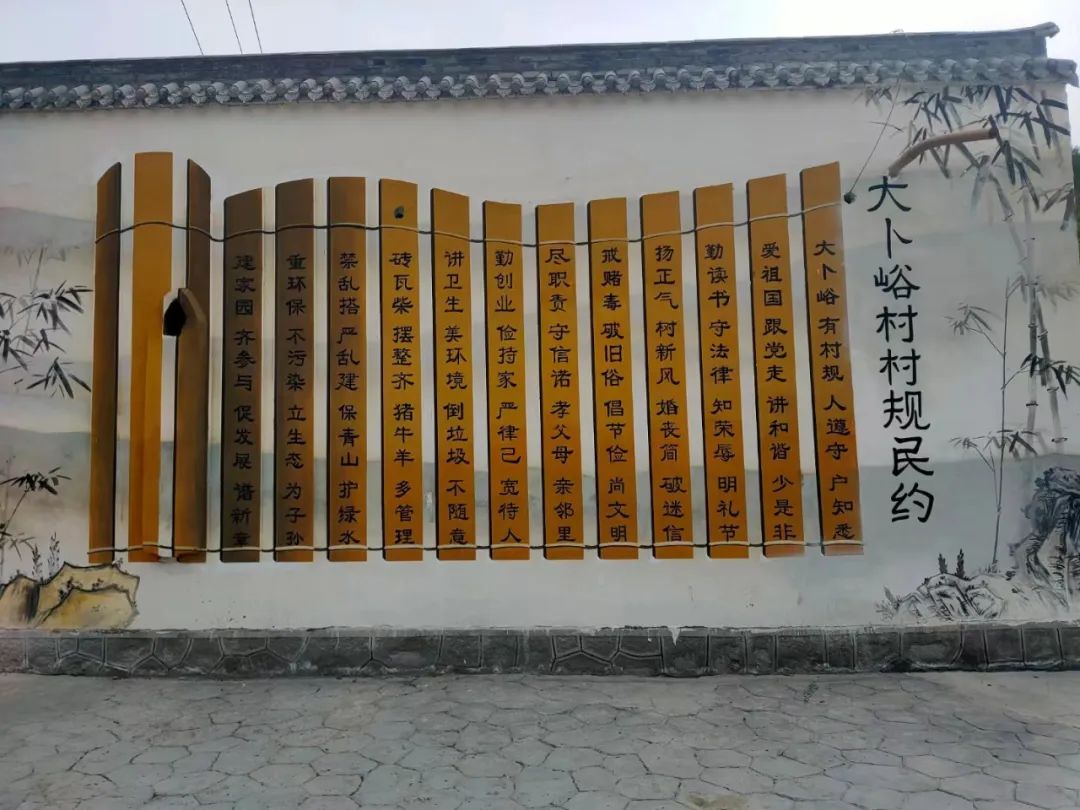 大卜峪村村规民约
大卜峪 有村规 人遵守 户知悉
爱祖国 跟党走 讲和谐 少是非
勤读书 守法律 知荣辱 明礼节
扬正气 树新风 婚丧简 破迷信
戒赌毒 破旧俗 倡节俭 尚文明
尽职责 守信诺 孝父母 亲邻里
勤创业 俭持家 严律己 宽待人
讲卫生 美环境 倒垃圾 不随意
砖瓦柴 摆整齐 猪牛羊 多管理
禁乱搭 严乱建 保青山 护绿水
重环保 不污染 立生态 为子孙
建家园 齐参与 促发展 谱新章